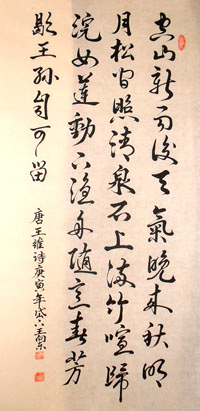 空山新雨後天氣晚來秋明
月松間照清泉石上流竹喧歸
浣女蓮動下漁舟隨意春芳
歇王孫自可留
唐王維詩庚寅年